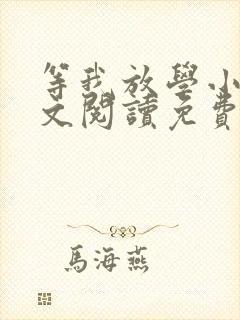 等我放學小
文閱讀免費
馬海燕